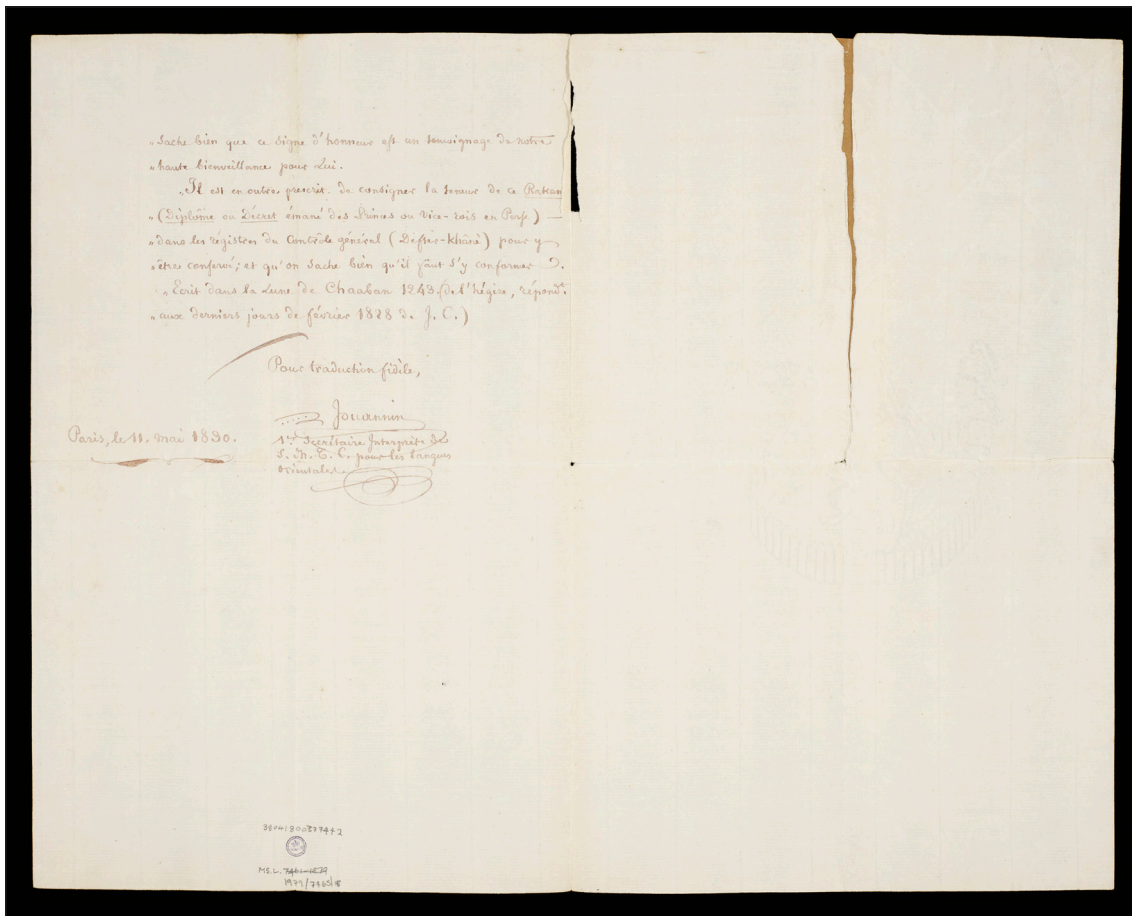 „ Sache bien que ce signe d'honneur est un témoignage de notre
„ haute bienveillance pour Lui.
„ Il est en outre prescrit de consigner la teneur de ce Rakam
„ (Diplôme ou Décret émané des Princes ou Vice-rois en Perse) —
„ dans les régistres du Contrôle général (Defter-khânè) pour y
„ être conservé; et qu'on sache bien qu'il faut s'y conformer.
„ Ecrit dans la Lune de Chaaban 1243. (de l'hégire, répondt.
„ aux derniers jours de février 1828 de J. C.)
Pour traduction fidèle,
Jouannin
Paris, le 11. mai 1830.
1er. Secrétaire Interprète de
S. M. T. C. pour les langues
orientales
MS.L.
1979/7465/8